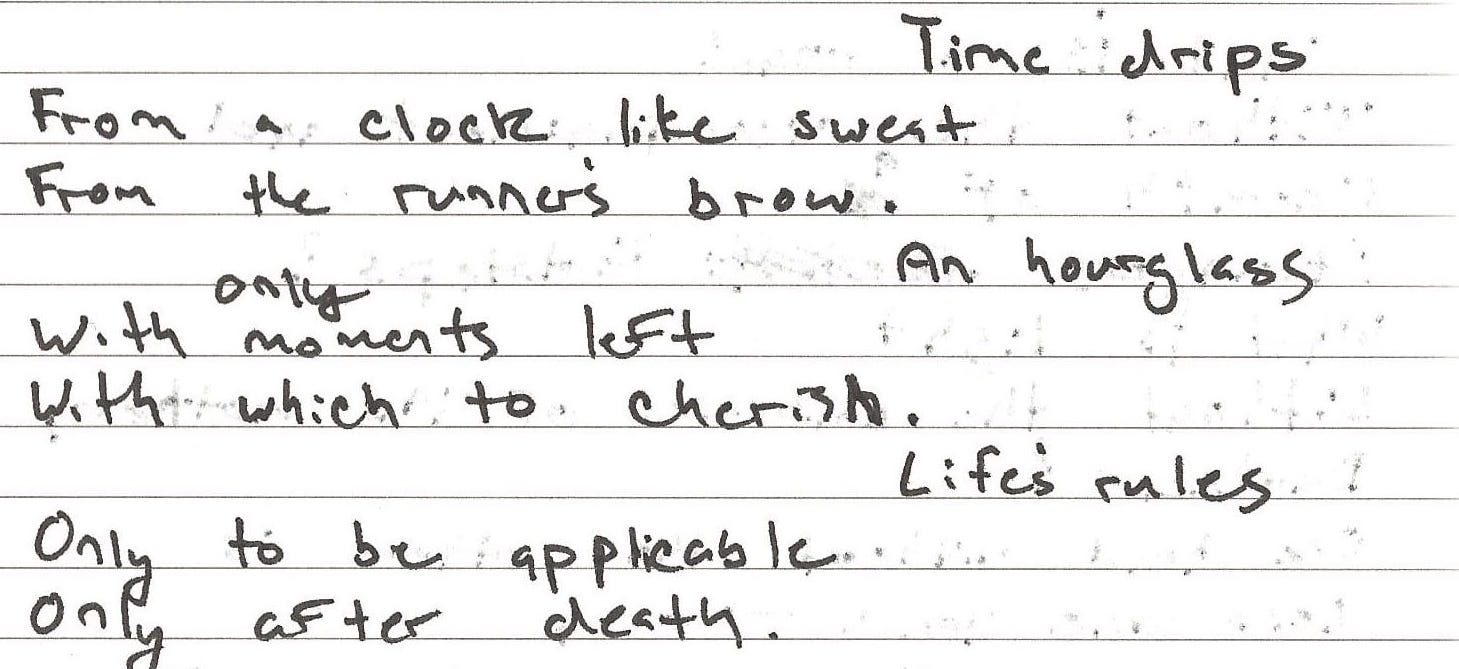 Time drips
From a clock like sweat
From the runner's brow.
An hourglass
only
With moments left
With which to cherish.
Life's rules
Only to be applicable
Only after death.